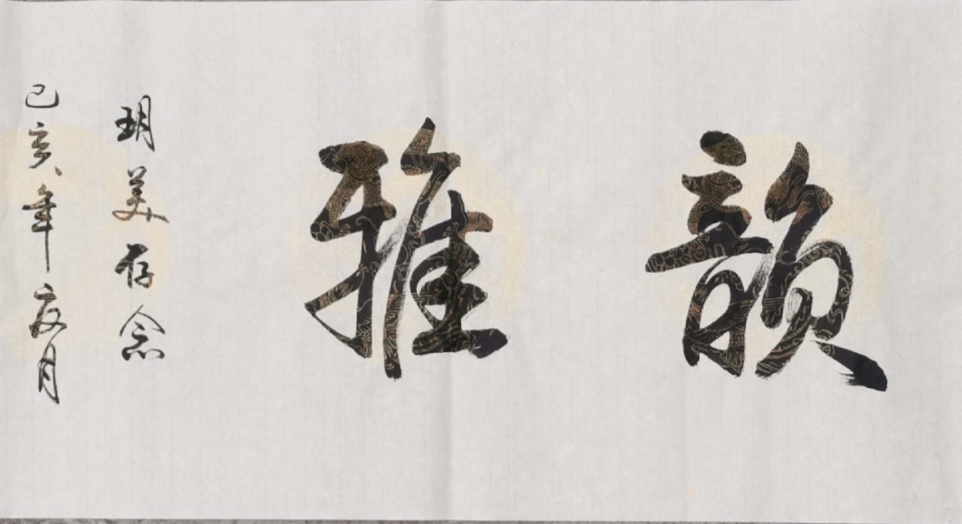 韻雅
玥美存念
己亥年夏月